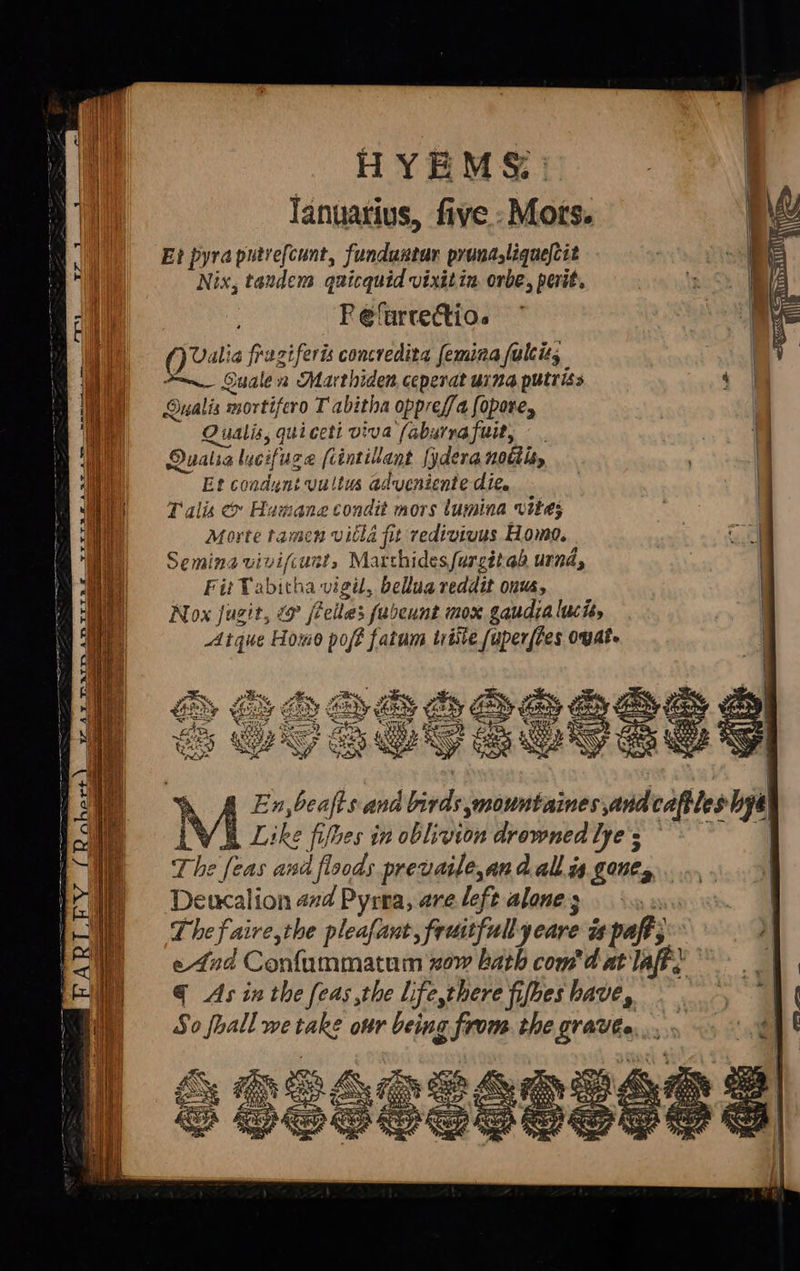 HYEMS.
Ianuarius, ſive Mors.
Et pyra putreſcunt, funduntur pruna, liqueſcit
Nix, tandem quicquid vixit in orbe, perit.
Reſurrectio.
QUalia frugiferis concredita ſemina ſulcis,
Qualem Marthiden, ceperat urna putris;
Qualis mortifero Tabitha oppreſſa ſopore,
Qualis, qui ceti viva ſaburra fuit,
Qualia lucifugæ ſcintillant ſydera noctis,
Et condunt vultus adveniente die.
Talis & Humanæ condit mors lumina vitæ;
Morte tamen victâ fit redivivus Homo.
Semina viviſcunt, Marthides ſurgit ab urnâ,
Fit Tabitha vigil, bellua reddit onus,
Nox fugit, & ſtellas ſubeunt mox gaudia lucis,
Atque Homo poſt fatum triſte ſuperſtes ovat.
MEn, beaſts and birds, mountaines, and caſtles hye
Like fiſhes in oblivion drowned lye;
The ſeas and floods prevaile, and all is gone,
Deucalion and Pyrra, are left alone;
The faire, the pleaſant, fruitfull yeare is paſt,
And Conſummatum now hath com'd at laſt.
¶ As in the ſeas, the life, there fiſhes have,
So ſhall we take our being from the grave.